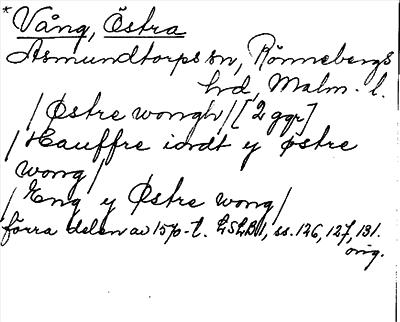 *Vång, Östra
Asmundtorps sn, Rönnebergs
hd, Malm. l.
/Østre wongh/ [2 ggr]
/Hauffre iordt y østre
wong/
/Eng y Østre wong/
förra delen av 1570-t. LSLB 1, ss. 126, 127, 131.
orig.